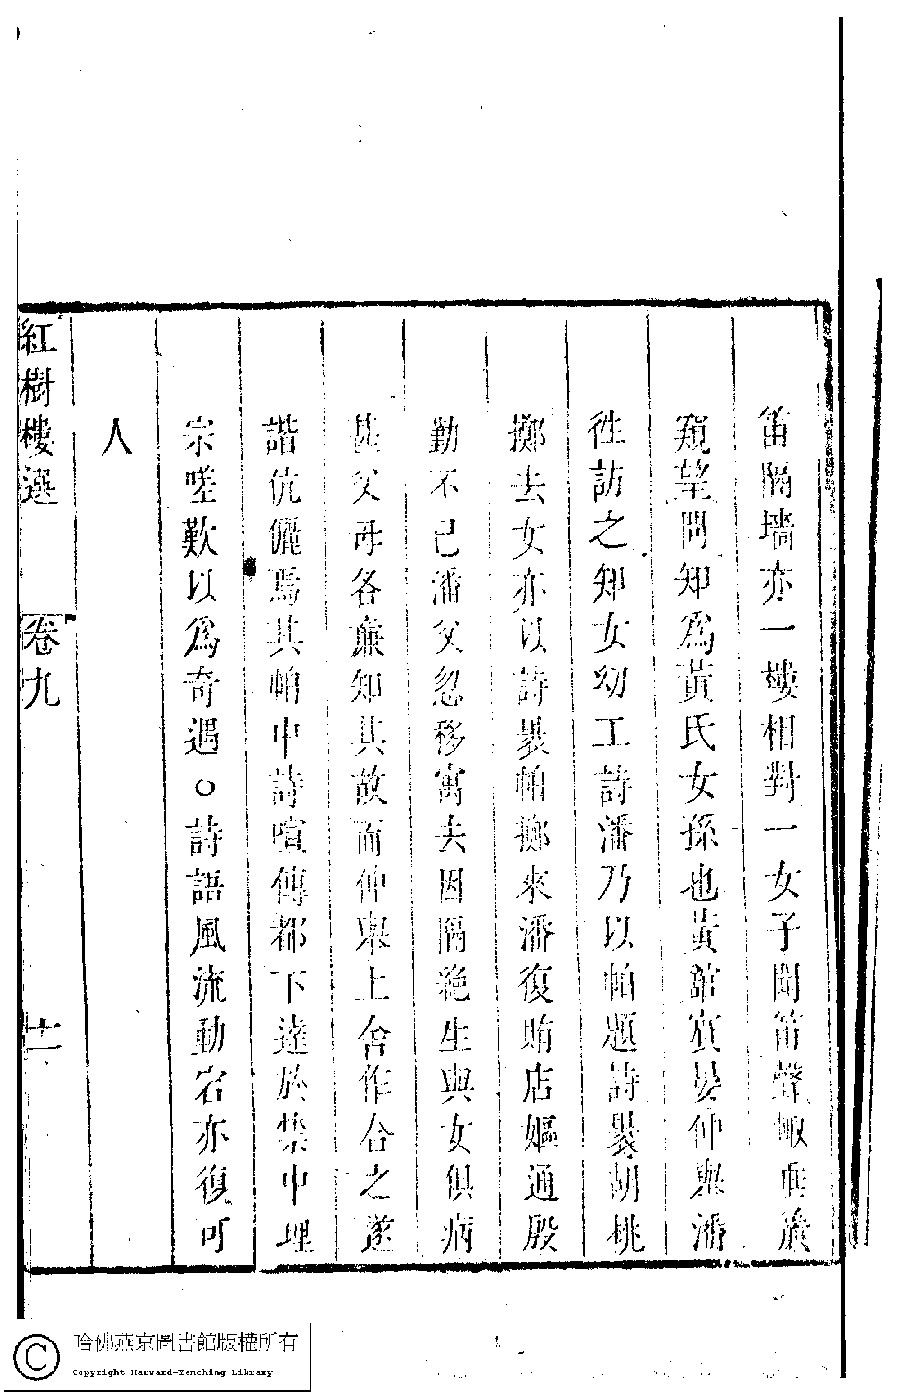 笛隔墻亦一樓相對一女子聞笛聲輒垂簾
窺望問知爲黃氏女孫也黃館賓晏仲舉潘
徃訪之知女幼工詩潘乃以帕題詩裹胡桃
擲去女亦以詩裹帕擲來潘復賄店嫗通殷
勤不已潘父忽移寓去因隔絶生與女俱病
甚父母各廉知其故而仲舉上舍作合之遂
諧伉儷焉其帕中詩喧傳都下達於禁中理
宗嗟歎以爲奇遇○詩語風流動宕亦復可
人
紅樹樓選 卷九 十一
哈佛燕京圖書館版權所有
Copyright Harvard-Yenching Library